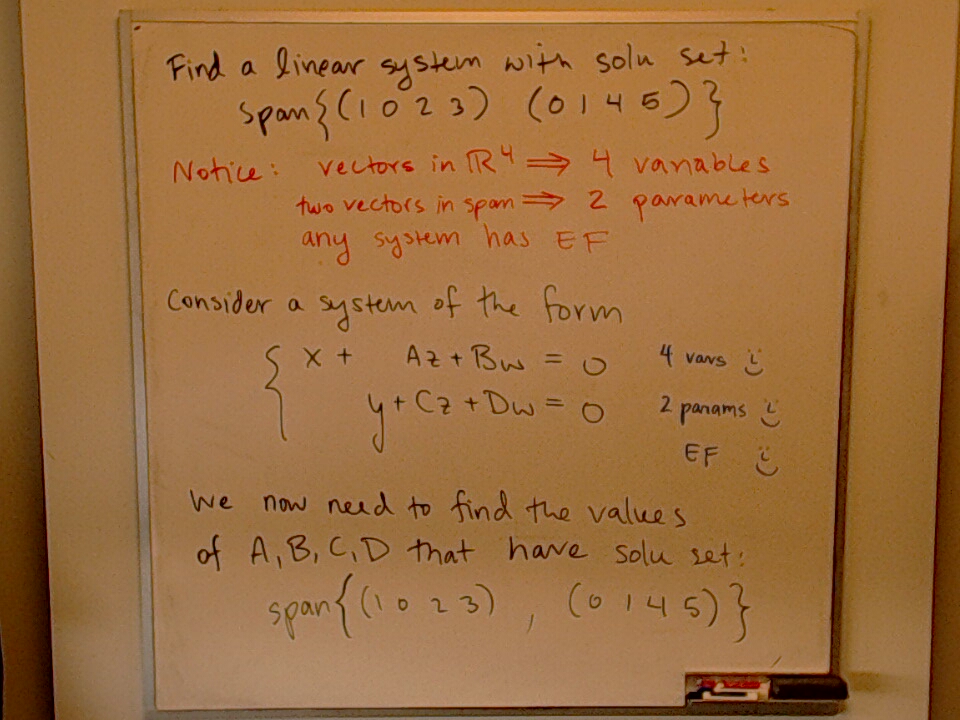 Find a linear system with soln set:
span{(1 0 2 3) (0 1 4 5)}
Notice: vectors in ℝ⁴ ⟹ 4 variables
two vectors in span ⟹ 2 parameters
any system has EF
Consider a system of the form
{ x + Az + Bw = 0 4 vars :)
y + Cz + Dw = 0 2 params :)
EF :)
We now need to find the values
of A, B, C, D that have soln set:
span{(1 0 2 3), (0 1 4 5)}